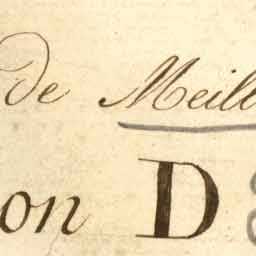 de Meill
on D